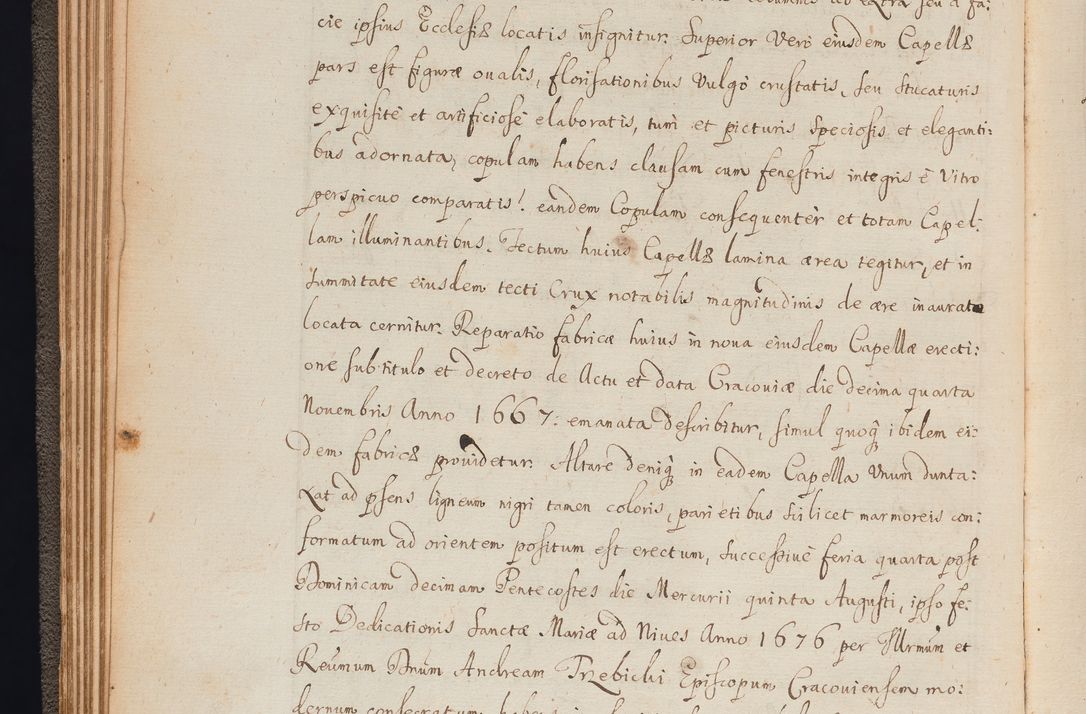 cie ipsius Ecclesiæ locatis insignitur. Superior Verò eiusdem Capellæ
pars est figuræ oualis, florisationibus Vulgò crustatis, seu stucaturis
exquisitè et artificiosè elaboratis, tum et picturis speciosis et eleganti:
bus adornata, copulam habens clausam cum fenestris integris è Vitro
perspicuo comparatis! eandem Copulam consequenter et totam Capel:
lam illuminantibus. Tectum huius Capellæ lamina ærea tegitur, et in
summitate eiusdem tecti Crux notabilis magnitudinis de ære inaurato
locata cernitur. Reparatio fabricæ huius in noua eiusdem Capellæ erecti:
one sub titulo et decreto de Actu et data Cracouiæ die decima quarta
Nouembris Anno 1667. emanata describitur, simul quoq̢ ibidem ei:
dem fabricæ prouidetur. Altare deniq̢ in eadem Capella Vnum dunta:
xat ad p̄sens ligneum nigri tamen coloris, parietibus scilicet marmoreis con:
formatum ad orientem positum est erectum, successiuè feria quarta post
Dominicam decimam Pentecostes die Mercurii quinta Augusti, ipso fe:
sto Dedicationis Sanctæ Mariæ ad Niues Anno 1676 per Illrmūm et
Reūmum Dnūm Andream Trzebicki Episcopum Cracouiensem mo:
dernum consecratum